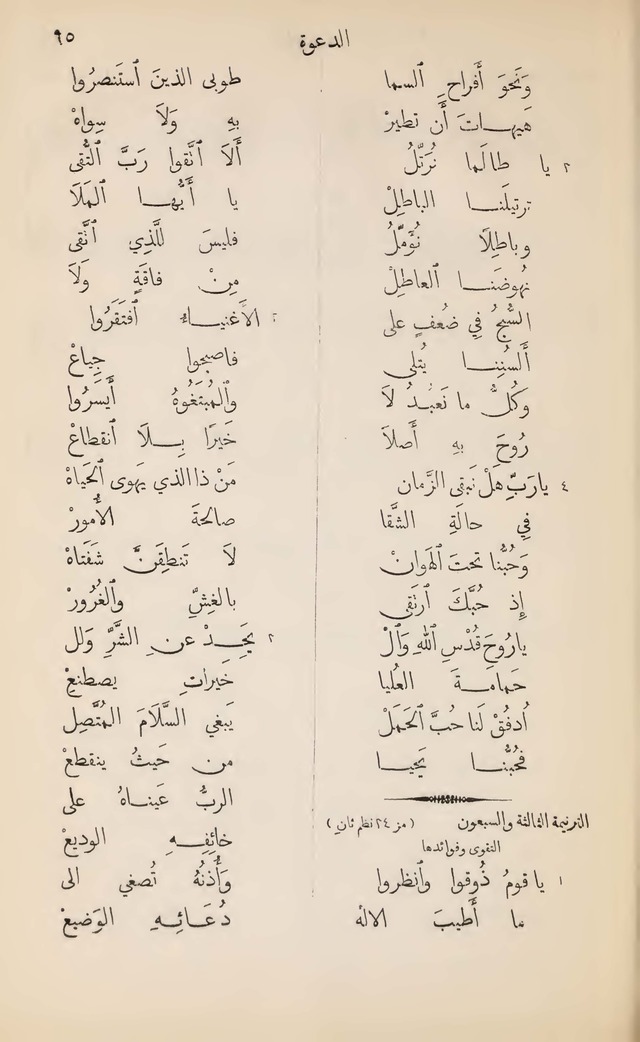 الدعوة
٩٥
وَنَحوَ أَفراحِ ٱلسما
هَيهاتَ أَن تطيرْ
٣ يا طالَما نُرَتِّلُ
ترتيلَنا الباطِلْ
وباطِلًا نُؤَمِّلُ
نهُوضَنا ٱلعاطِلْ
السُّبحُ فِي ضُعفٍ على
أَلسُنِنا يُتلى
وَكُلُّ ما نَعبُدُ لَا
رُوحَ بِهِ أَصلاَ
٤ يارَبِّ هَلْ نَبقى الزَّمان
فِي حالَةِ الشَّقا
وَحُبُّنا تحتَ ٱلهَوانْ
إِذ حُبُّكَ ٱرتَقى
يارُوحَ قُدْسِ ٱللهِ وَٱلْ
حمامَةَ العُليا
أُدفُقْ لَنا حُبَّ ٱلحَمَلْ
فحُبُّنا يَحيا
الترنيمة الثالثة والسبعون (مز ٣٤ نظم ثانٍ)
التقوى وفوائدها
١ يا قومُ ذُوقوا وٱنظروا
ما أَطيبَ الاله
طوبى الذينَ ٱستَنصرُوا
بِهِ وَلاَ سِواهْ
أَلاَ ٱتَّقوا رَبَّ التُّقى
يا أَيُّها ٱلمَلَا
فليسَ لِلَّذِي ٱتَّقى
مِنْ فاقَةٍ وَلَا
٢ الأَغنياءُ ٱفتَقَرُوا
فاصبحوا جِياعْ
وَٱلمُبتَغُوهُ أَيسَرُوا
خَيرًا بِلاَ ٱنقطاعْ
مَنْ ذا الذي يَهوى ٱلحَيَاهْ
صالحَةَ الأُمورْ
لاَ تَنطِقَنَّ شَفَتاهْ
بالغِشِّ وٱلغُرُورْ
٣ يَحِدْ عنِ الشَّرِّ وَلل
خيراتِ يصطنعْ
يَبغي السَّلاَمَ المُتَّصِل
من حَيثُ ينقطعْ
الربُّ عَيناهُ على
خائِفِهِ الوديعْ
وَأُذنُهُ تُصغي الى
دُعائِهِ الوَضيعْ